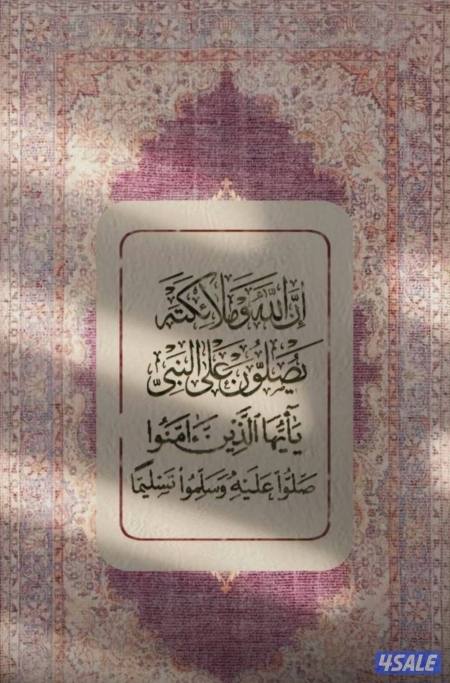 إِنَّ اللَّهَ وَمَلَائِكَتَهُ
يُصَلُّونَ عَلَى النَّبِيِّ
يَٰأَيُّهَا ٱلَّذِينَ ءَامَنُوا
صَلُّوا عَلَيْهِ وَسَلِّمُوا تَسْلِيمًا
4SALE